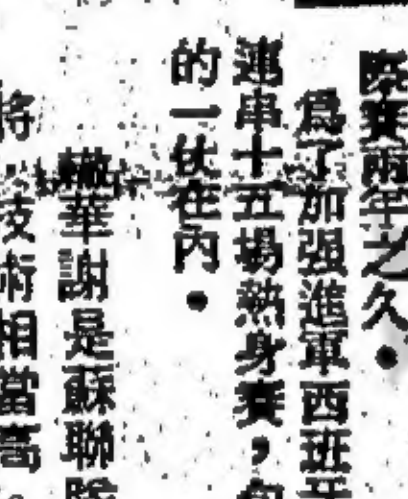 際賽兩年之久。
為了加强進軍西班牙
連串十五場熱身賽，包
的一仗在內。
華謝是蘇聯隊
將技術相當高。